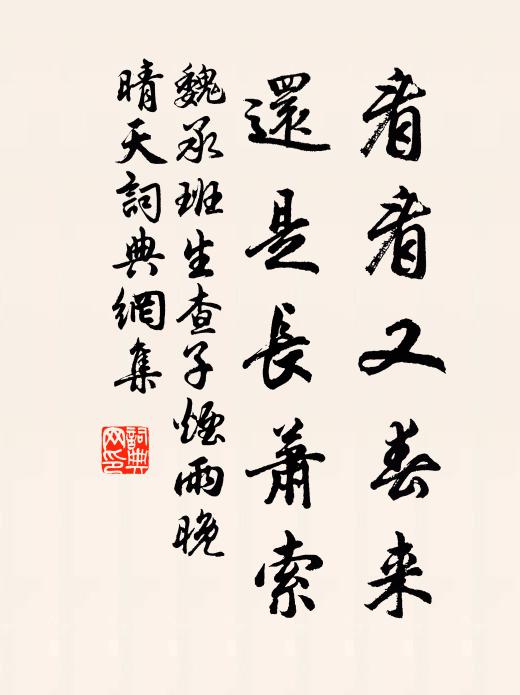 看看又春來
還是長蕭索
魏承班生查子煙雨晚
晴天詞典網集
詞典網印